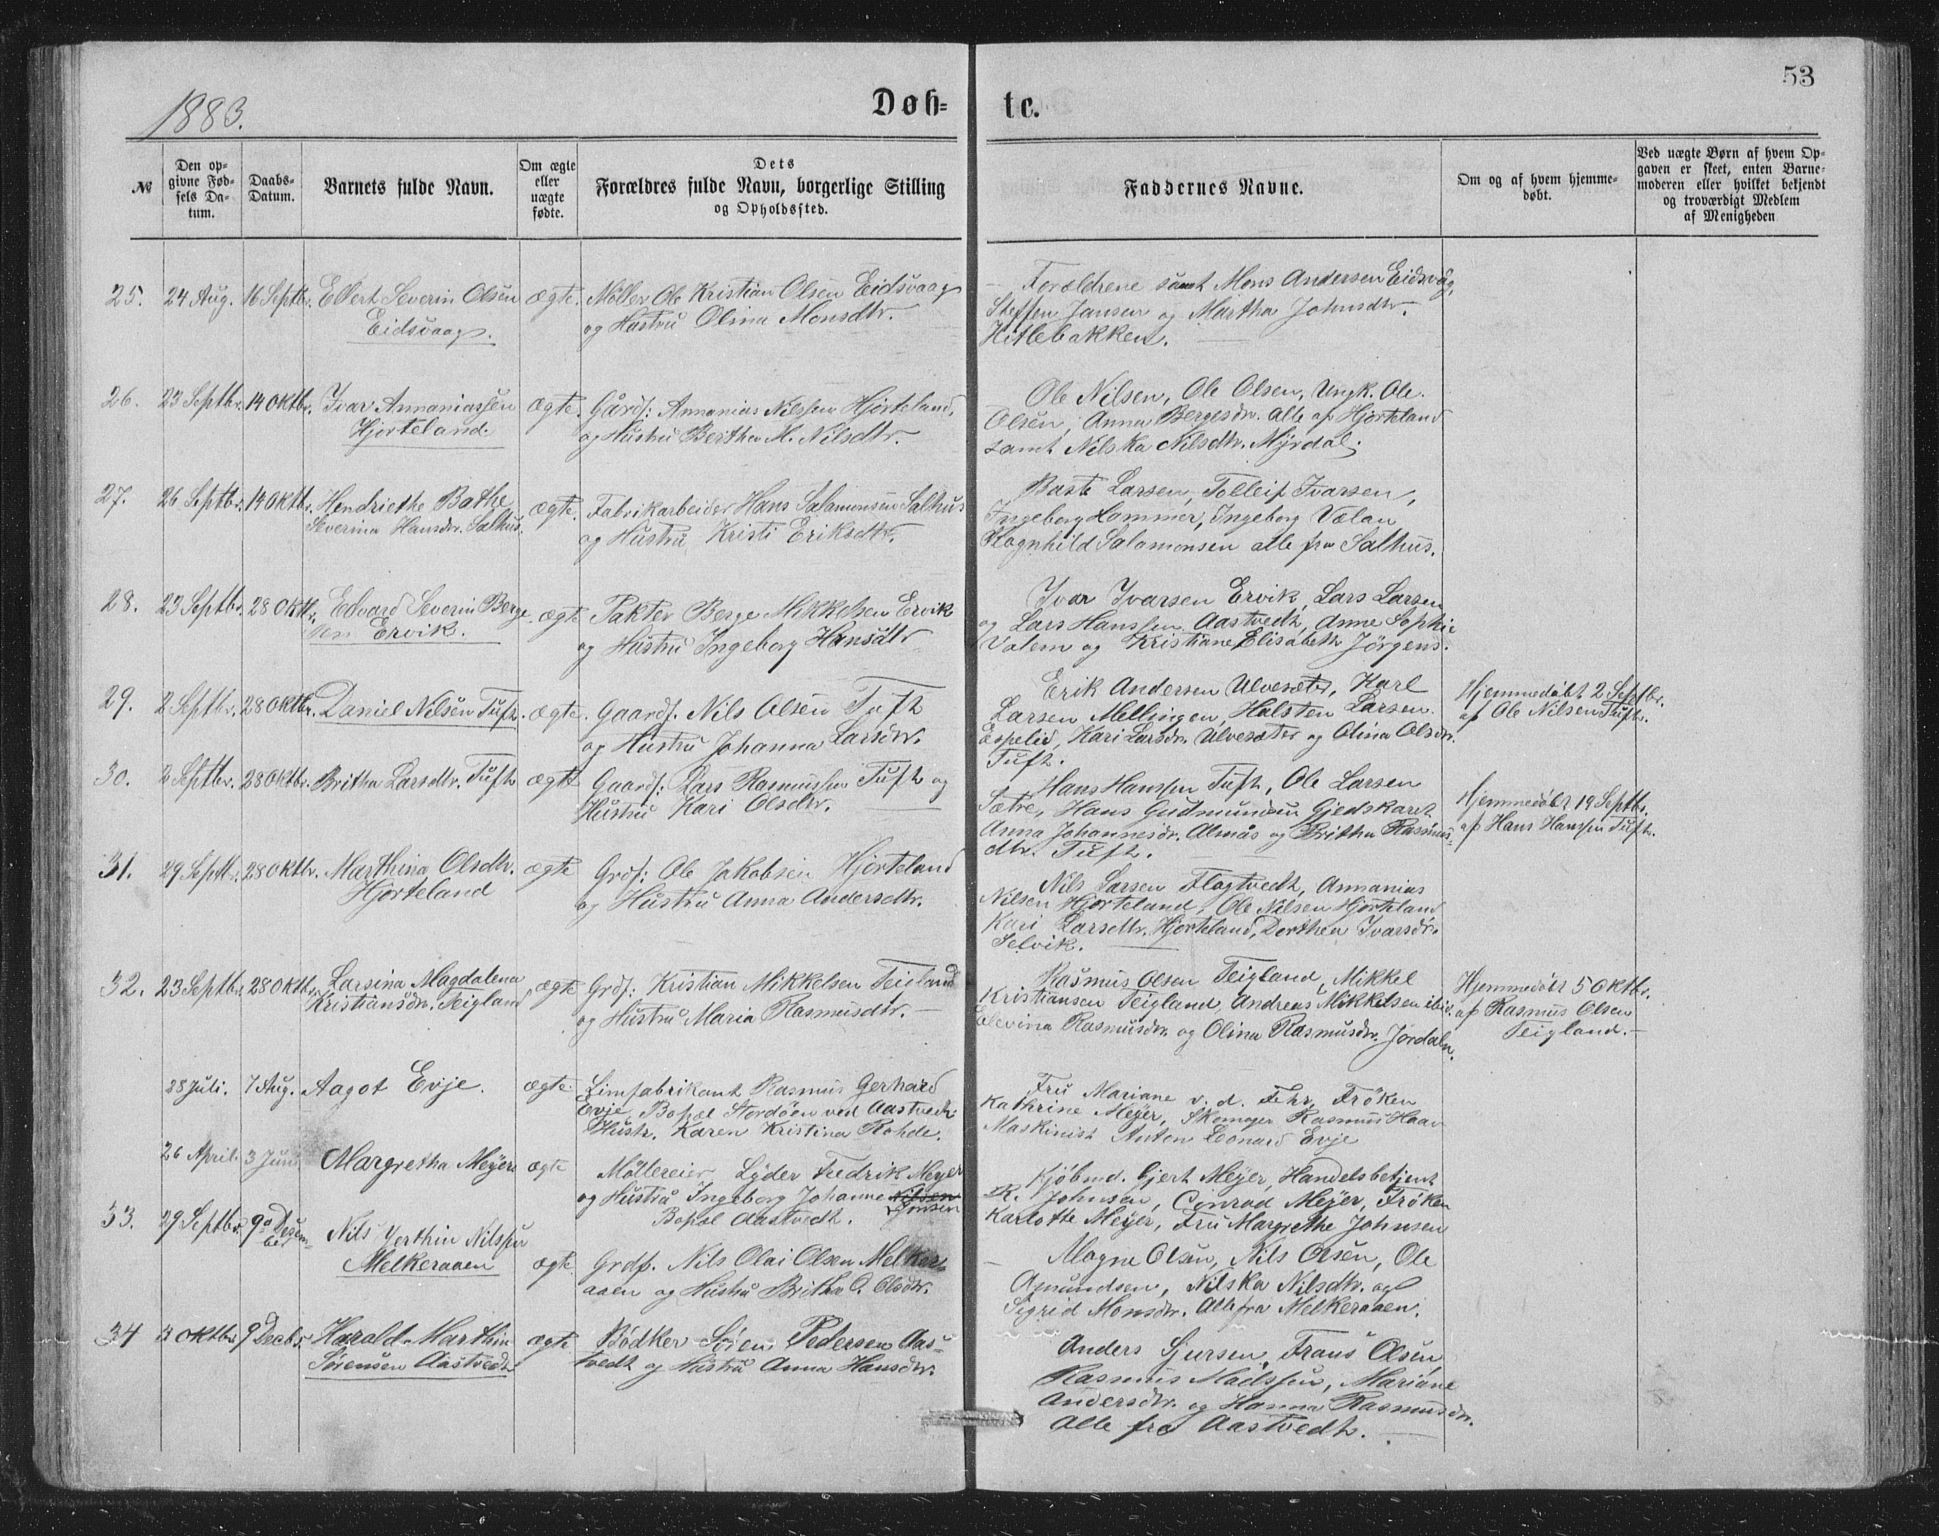 53
1883.
Døb=
te.
№
Den op=
givne Fød=
sels Da=
tum.
Daabs=
Datum.
Barnets fulde Navn.
Om ægte
eller
uægte
fødte.
Dets
Forældres fulde Navn, borgerlige Stilling
og Opholdssted.
Faddernes Navne.
Om og af hvem hjemme=
døbt.
Ved uægte Børn af hvem Op=
gaven er skeet, enten Barne=
moderen eller hvilket bekjendt
og troværdigt Medlem
af Menigheden
25. 24 Aug. 16 Septbr. Ellert Severin Olsen ægte. Møller Ole Kristian Olsen Eidsvaag
Eidsvaag. og Hustru Olina Monsdtr.
Forældrene samt Mons Andersen Eidsvåg,
Steffen Jansen og Martha Johnsdtr.
Hitlebakken.
26. 23 Septbr. 14 Oktbr. Ivar Annaniassen ægte. Gårdf: Annanias Nilssen Hjorteland,
Hjorteland. og Hustru Beritha M. Nilsdtr.
Ole Nilsen, Ole Olsen, Ungk. Ole
Olsen, Anna Bergesdr. alle af Hjorteland
samt Nilska Nilsdtr. Myrdal.
27. 26 Septbr. 14 Oktbr. Hendriethe Bathe ægte. Fabrikarbeider Hans Salamonsen Salhus
Severina Hansdr. Salhus. og Hustru Kristi Eriksdtr.
Baste Larsen, Tolleif Ivarsen,
Ingeborg Hammer, Ingeborg Vælan
Ragnhild Salamonsen alle fra Salhus.
28. 23 Septbr. 28 Oktbr. Edvard Severin Berge ægte Pakter Berge Mikkelsen Ervik
sen Ervik. og Hustru Ingeborg Hansdtr
Ivar Ivarsen Ervik, Lars Larsen
og Lars Hanssen Aastvedt, Anne Sophie
Valem og Kristiane Elisabeth Jörgens.
29. 2 Septbr. 28 Oktbr. Daniel Nilsen Tuft. ægte. Gaardf. Nils Olsen Tuft
og Hustru Johanna Larsdtr.
Erik Andersen Ulvesæter, Karl
Larsen Mellingen, Halsten Larsen
Espelid, Kari Larsdr. Ulvesæter og Olina Olsdr.
Tuft.
Hjemmedøbt 2 Septbr.
af Ole Nilsen Tuft.
30. 2 Septbr. 28 Oktbr. Britha Larsdtr. Tuft ægte Gaardf: Lars Rasmussen Tuft og
Hustru Kari Olsdtr.
Hans Hanssen Tuft, Ole Larsen
Sætre, Hans Gudmundsen Gjedskaret
Anna Johannesdr. Almås og Britha Rasmus=
dtr. Tuft.
Hjemmedøbt 19 Septbr.
af Hans Hanssen Tuft.
31. 29 Septbr. 28 Oktbr. Marthina Olsdtr. ægte Grdf: Ole Jakobsen Hjorteland
Hjorteland og Hustru Anna Andersdtr.
Nils Larsen Flagtvedt, Annanias
Nilsen Hjorteland, Ole Nilsen Hjorteland
Kari Larsdtr. Hjorteland, Dorthea Ivarsdr.
Selvik.
32. 23 Septbr. 28 Oktbr. Larsina Magdalena ægte Grdf: Kristian Mikkelsen Teigland
Kristiansdr. Teigland og Hustru Maria Rasmusdtr.
Rasmus Olsen Teigland, Mikkel
Kristiansen Teigland, Andreas Mikkelsen ibid.
Rasmusdr. og Olina Rasmusdr. Jordaln.
Hjemmedøbt 5 Oktbr.
af Rasmus Olsen
Teigland.
28 Juli. 7 Aug. Aagot Evje. ægte. Limfabrikant Rasmus Gerhard
Evje, Bopæl Stordöen ved Aastvedt.
Hustr. Karen Kristina Rohde.
Fru Mariane v. d. Fehr, Fröken
Kathrine Meyer, Rasmus Haar
Maskinist Anton Leonard Evje
26 April. 3 Juni Margretha Meyer ægte Møllereier Lyder Fredrik Meyer
og Hustru Ingeborg Johanne Nilsen
Jonsen
Bopæl Aastvedt.
Kjøbmd. Gjert Meyer, Handelsbetjent
R. Johnsen, Conrad Meyer, Fröken
Karlotte Meyer, Fru Margrethe Johnsen
33. 29 Septbr. 9de Desem=
ber Nils Nilssen
Melkeraaen ægte. Grdf. Nils Olai Olsen Melker
aaen og Hustru Britha O. Olsdtr.
Magne Olsen, Nils Olsen, Ole
Amundsen, Nilska Nilsdtr. og
Sigrid Monsdtr. Alle fra Melkeraaen.
34 Oktbr. 9 Decbr. Harald Marthin ægte Bødker Sören Pedersen Aas=
Sørensen Aastvedt tvedt og Hustru Anna Hansdtr.
Anders Sjursen, Frans Olsen,
Rasmus Madssen, Mariane
Andersdtr. og Hanna Rasmusdr.
Alle fra Aastvedt.